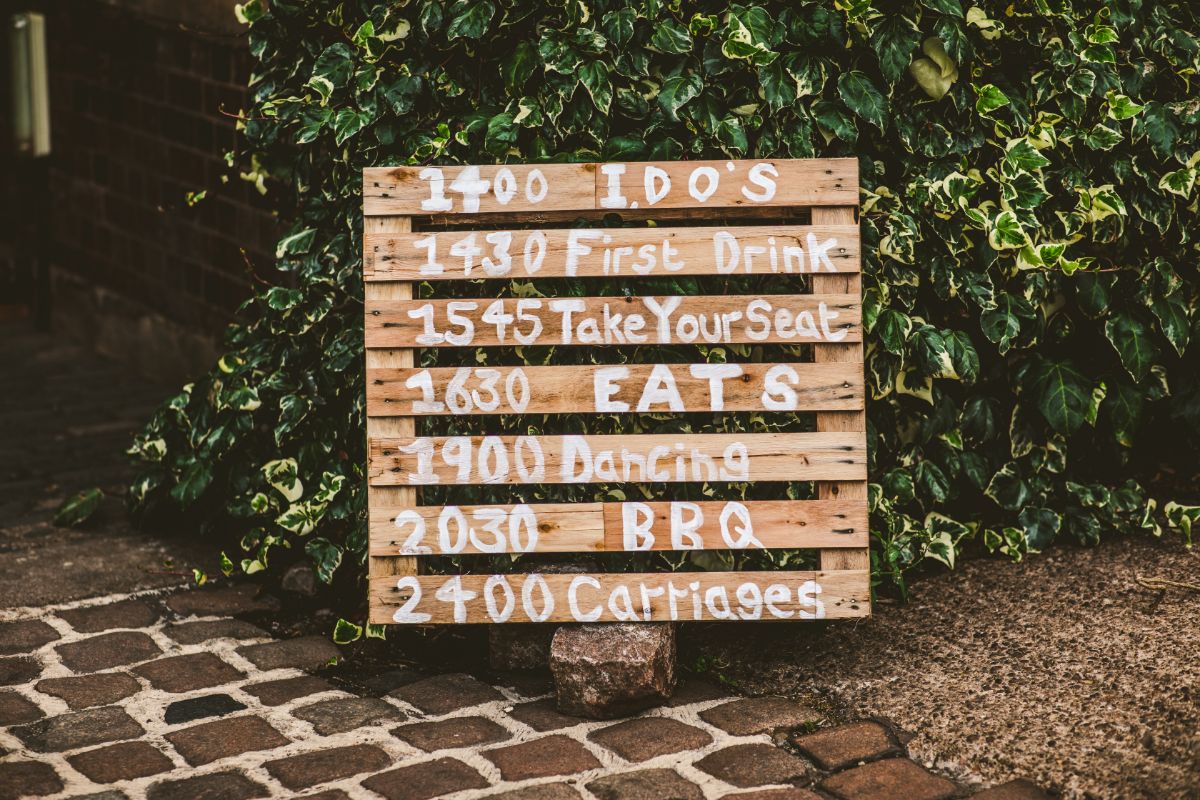 1400 I.DO'S
1430 First Drink
1545 Take Your Seat
1630 EATS
1900 Dancing
2030 BBQ
2400 Carriages